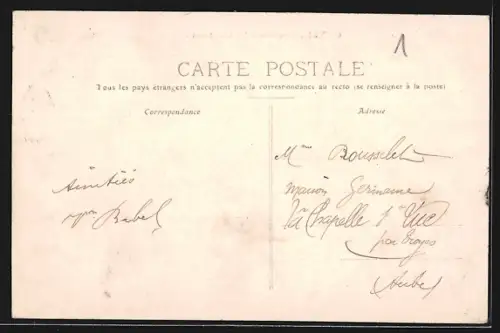 1
CARTE POSTALE
Tous les pays étrangers n'acceptent pas la correspondance au recto (se renseigner à la poste)
Correspondance
Adresse
Amitiés
Babel
Mme Rousselet
maison Germaine
La Chapelle St Luc
par Troyes
Aube